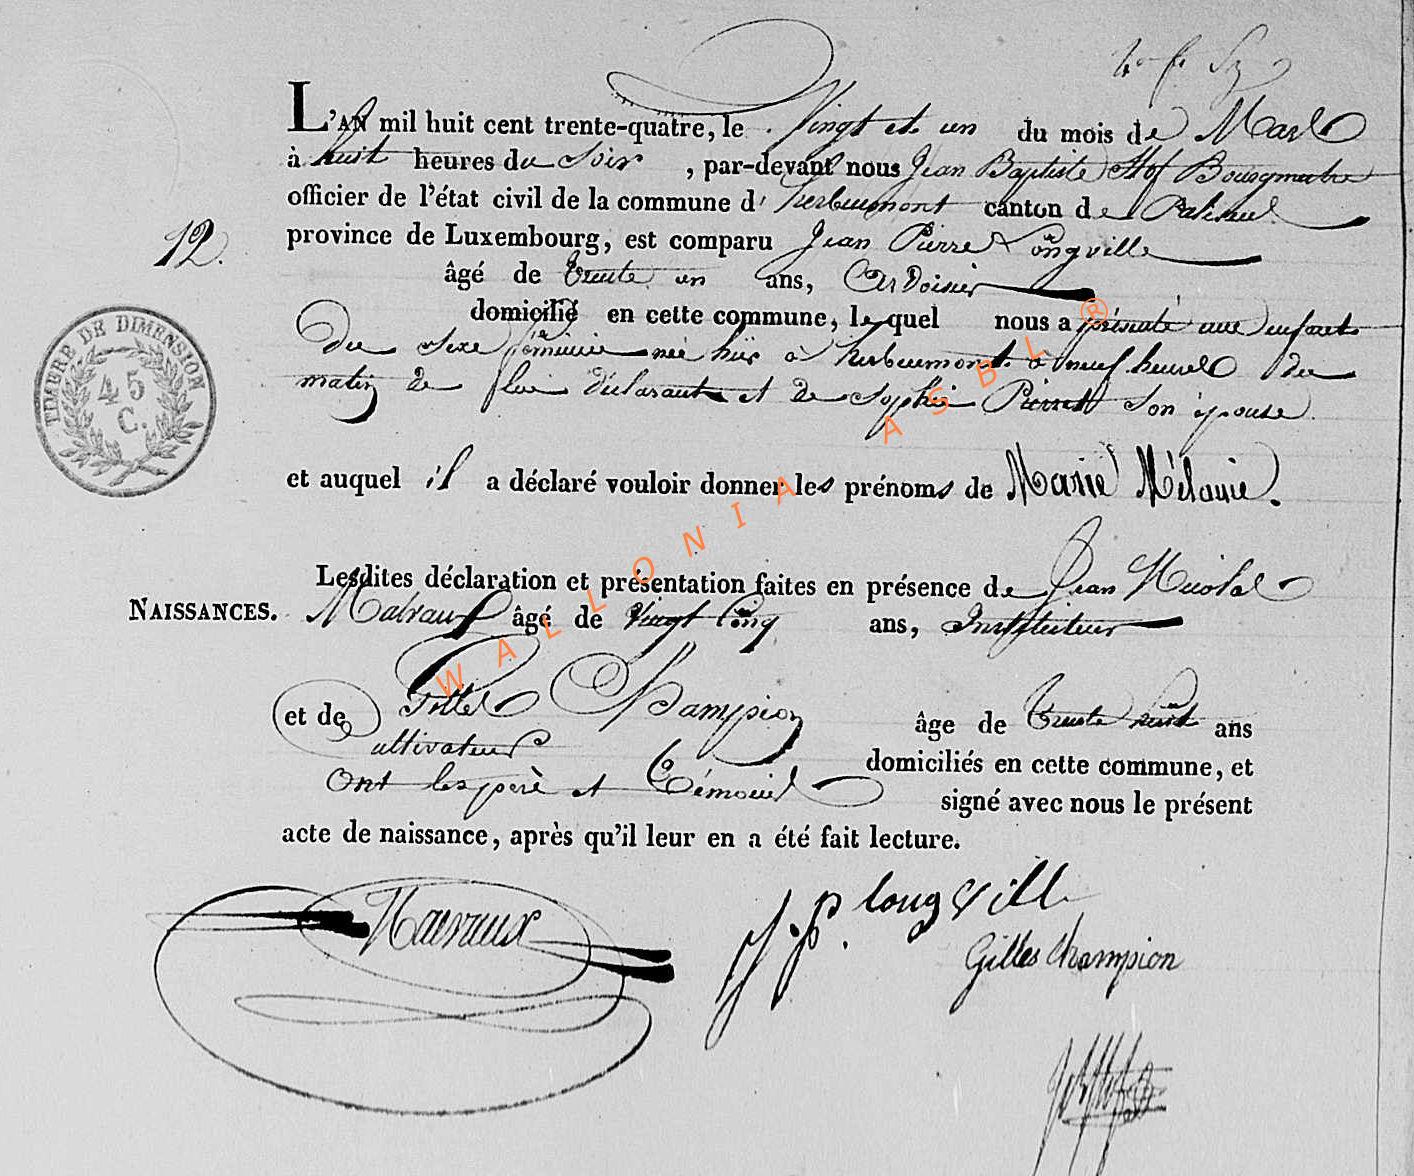 L'AN mil huit cent trente-quatre, le Vingt et un du mois de Mars
à huit heures du Soir, par-devant nous Jean Baptiste Hof Bourgmestre
officier de l'état civil de la commune d'herbeumont canton de Paliseul
12.
province de Luxembourg, est comparu Jean Pierre Longville
âgé de trente un ans, Ardoisier
domicilié en cette commune, lequel nous a présenté une enfant
du sexe féminin née hier à herbeumont à neuf heures du
matin de lui déclarant et de Sophie Pierret son épouse
TIMBRE DE DIMENSION
45
C.
et auquel il a déclaré vouloir donner les prénoms de Marie Mélanie.
Lesdites déclaration et présentation faites en présence de Jean Nicolas
NAISSANCES. Malvaux âgé de Vingt Cinq ans, Instituteur
et de Gilles Champion âge de trente huit ans
cultivateur domiciliés en cette commune, et
Ont les père et témoins signé avec nous le présent
acte de naissance, après qu'il leur en a été fait lecture.
Malvaux J.P. longville
Gilles Champion
WALLONIA ASBL ®